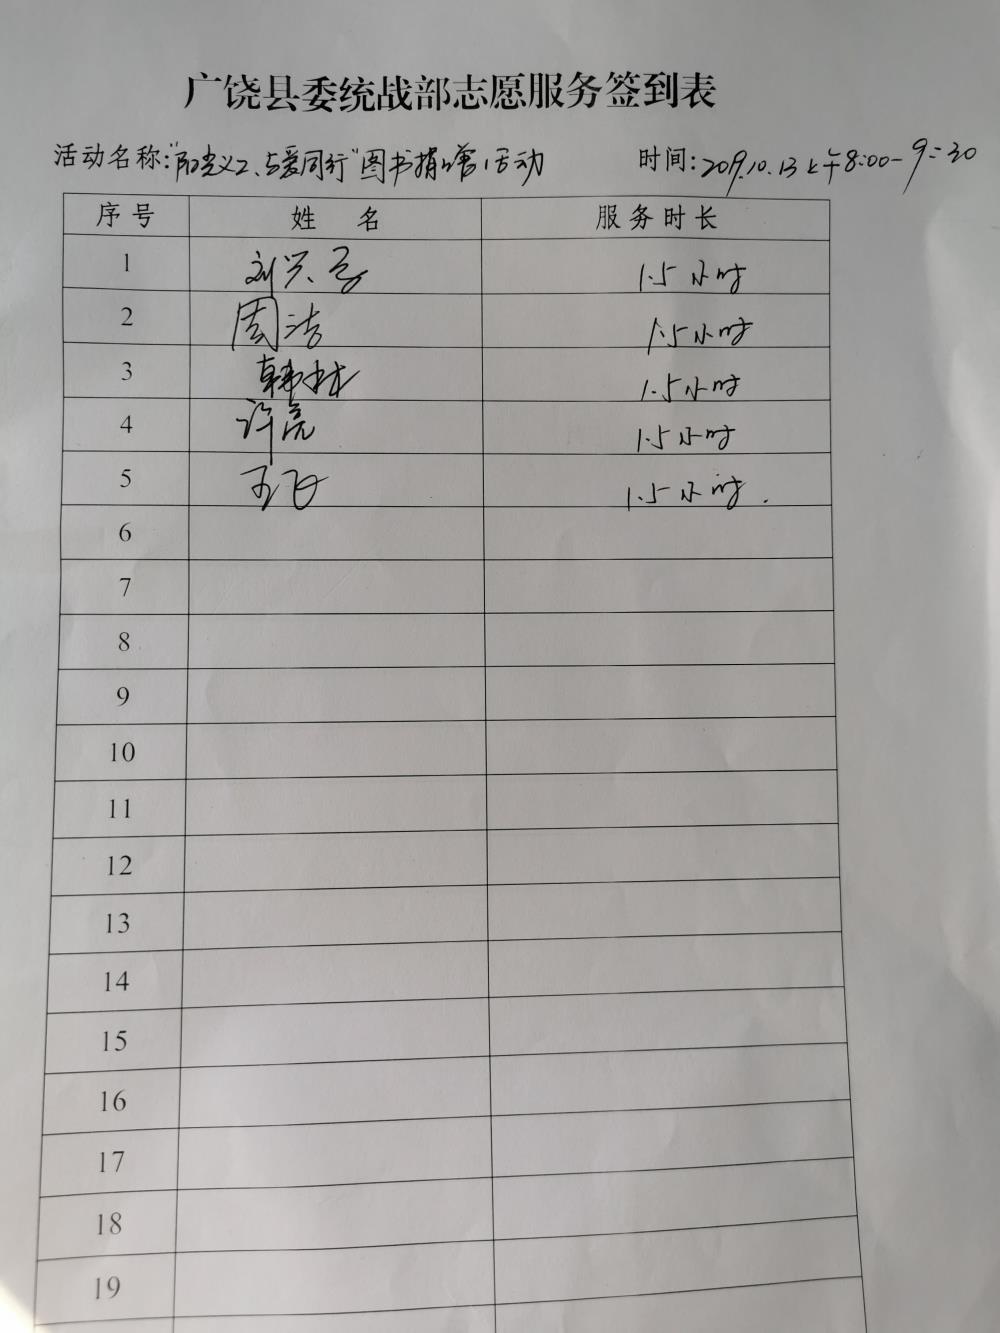 广饶县委统战部志愿服务签到表
活动名称:“阳光义工、与爱同行”图书捐赠活动 时间:2019.10.13上午8:00-9:30
序号 姓 名 服务时长
1 刘兴 1.5小时
2 周洁 1.5小时
3 韩林 1.5小时
4 许亮 1.5小时
5 王飞 1.5小时.
6
7
8
9
10
11
12
13
14
15
16
17
18
19